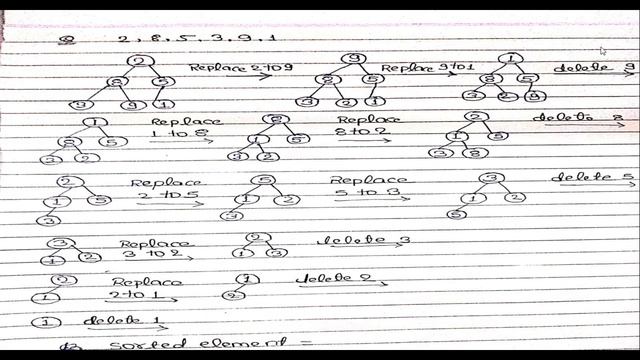 Q 2, 8, 5, 3, 9, 1
2 8 5 3 9 1 Replace 2 to 9 9 8 5 3 2 1 Replace 9 to 1 1 8 5 3 2 9 delete 9
1 8 5 3 2 Replace 1 to 8 8 1 5 3 2 Replace 8 to 2 2 1 5 3 8 delete 8
2 1 5 3 Replace 2 to 5 5 1 2 3 Replace 5 to 3 3 1 2 5 delete 5
3 1 2 Replace 3 to 2 2 1 3 delete 3
2 1 Replace 2 to 1 1 2 delete 2
1 delete 1
sorted element =